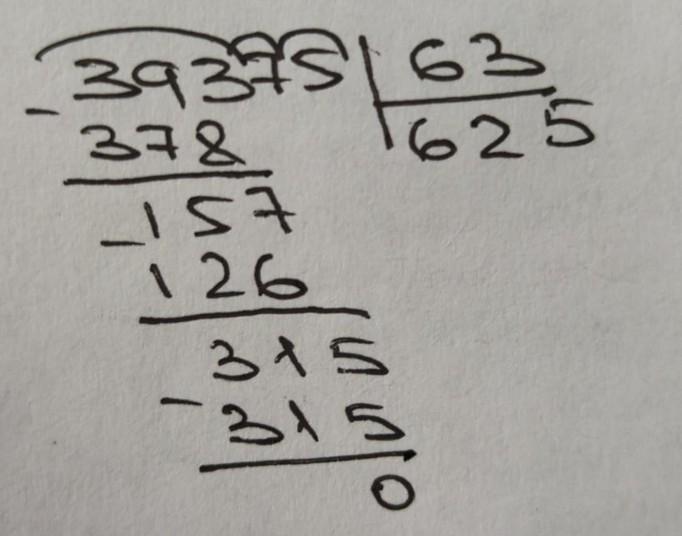 39375 | 63
- 378 | 625
- 157
126
315
- 315
0